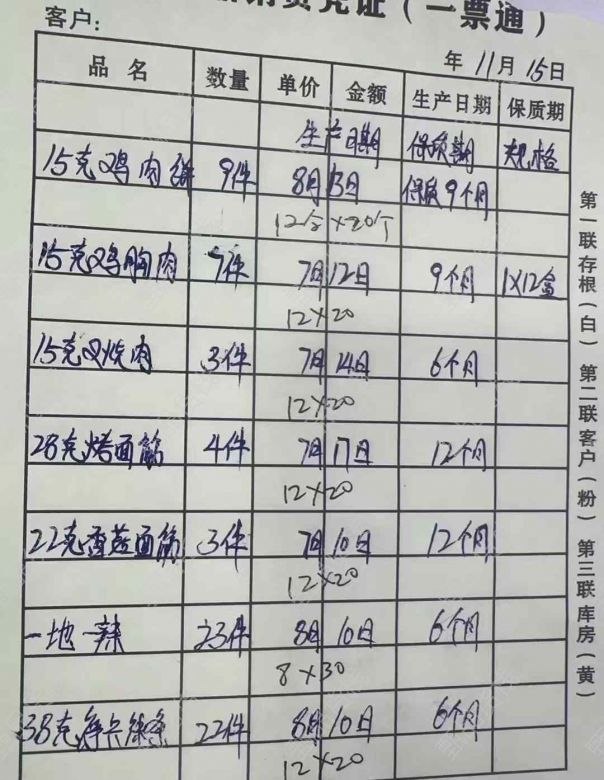 消费凭证（一票通）
客户：
年 11月 15日
品名 数量 单价 金额 生产日期 保质期
生产日期 保质期 规格
15克鸡肉 9件 8月13日 保质9个月
12盒×20个
15克鸡胸肉 7件 7月12日 9个月 1X12盒
12×20
15克叉烧肉 3件 7月14日 6个月
12×20
28克烤面筋 4件 7月17日 12个月
12×20
22克香菇面筋 3件 7月10日 12个月
12×20
一地一辣 23件 8月10日 6个月
8×30
38克 22件 8月10日 6个月
12×20
第一联存根（白） 第二联客户（粉） 第三联库房（黄）